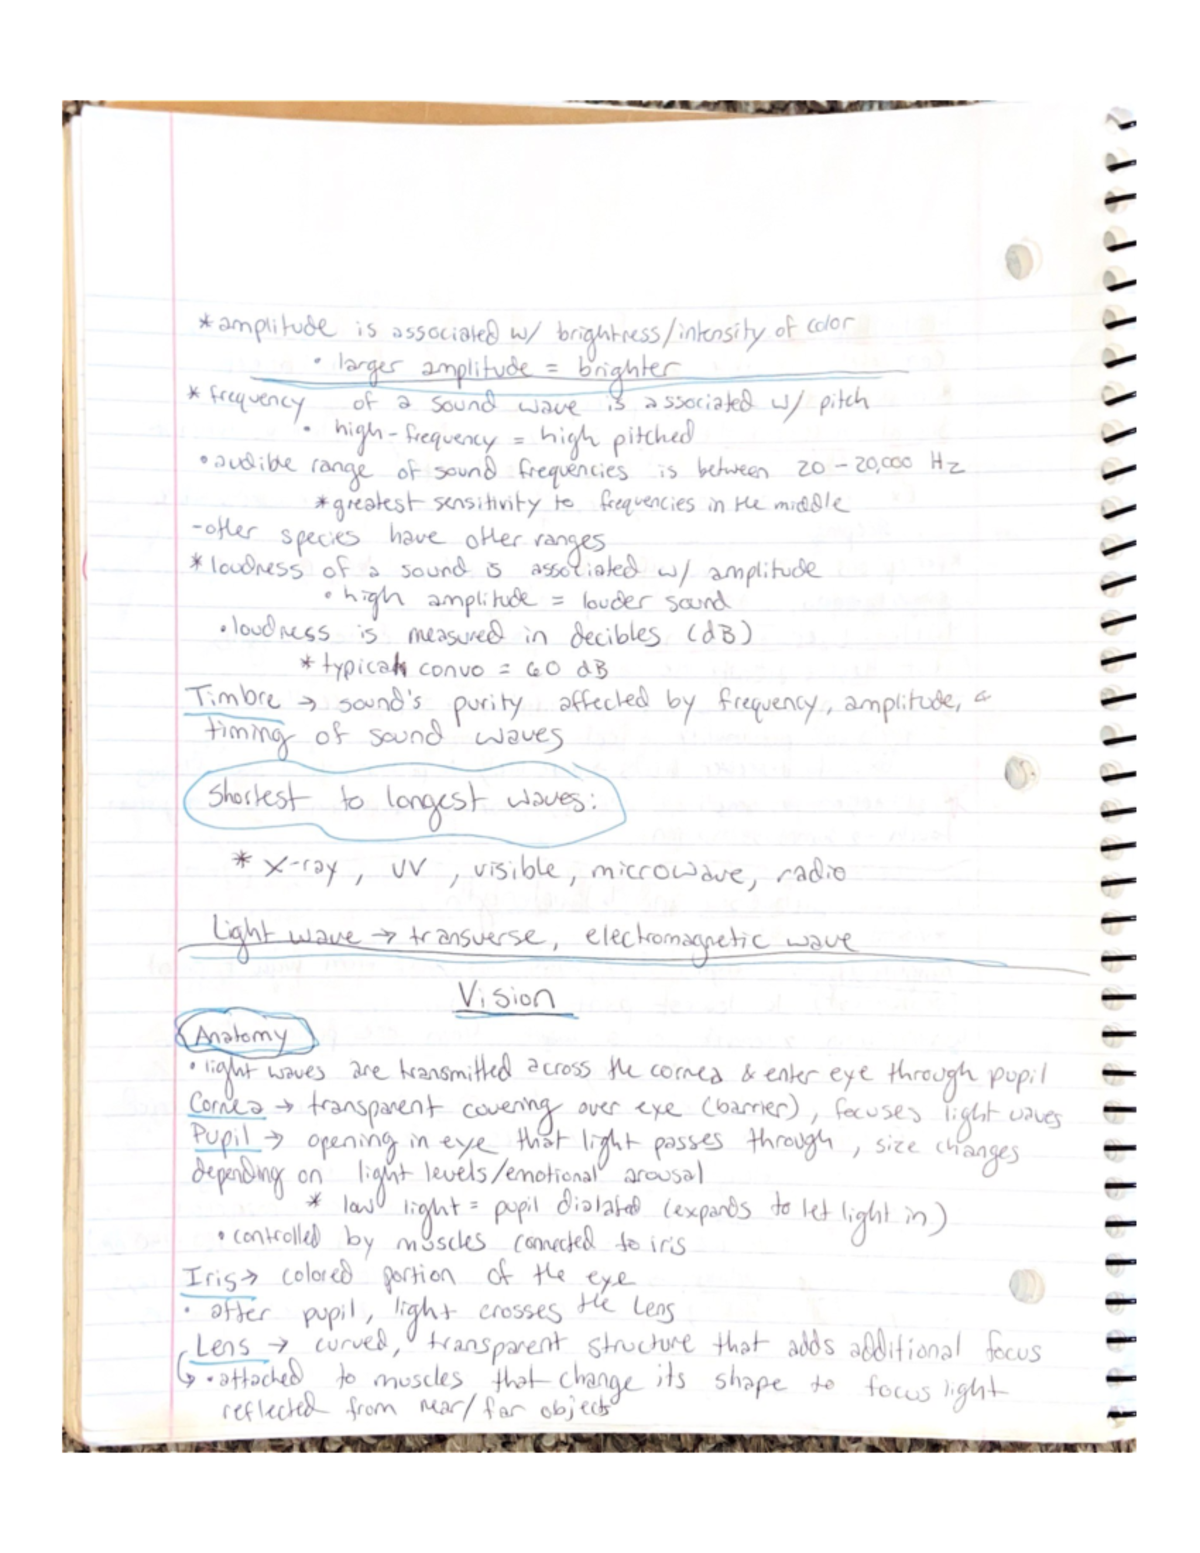 * amplitude is associated w/ brightness/intensity of color
• larger amplitude = brighter
* frequency of a sound wave is associated w/ pitch
• high-frequency = high pitched
• audible range of sound frequencies is between 20 – 20,000 Hz
* greatest sensitivity to frequencies in the middle
- other species have other ranges
* loudness of a sound is associated w/ amplitude
• high amplitude = louder sound
• loudness is measured in decibles (dB)
* typical convo = 60 dB
Timbre → sound's purity affected by frequency, amplitude, &
timing of sound waves
Shortest to longest waves:
* X-ray, UV, visible, microwave, radio
Light wave → transverse, electromagnetic wave
Vision
Anatomy
• light waves are transmitted across the cornea & enter eye through pupil
Cornea → transparent covering over eye (barrier), focuses light waves
Pupil → opening in eye that light passes through, size changes
depending on light levels/emotional arousal
* low light = pupil dialated (expands to let light in)
• controlled by muscles connected to iris
Iris → colored portion of the eye
• after pupil, light crosses the lens
Lens → curved, transparent structure that adds additional focus
↳ • attached to muscles that change its shape to focus light
reflected from near/far objects